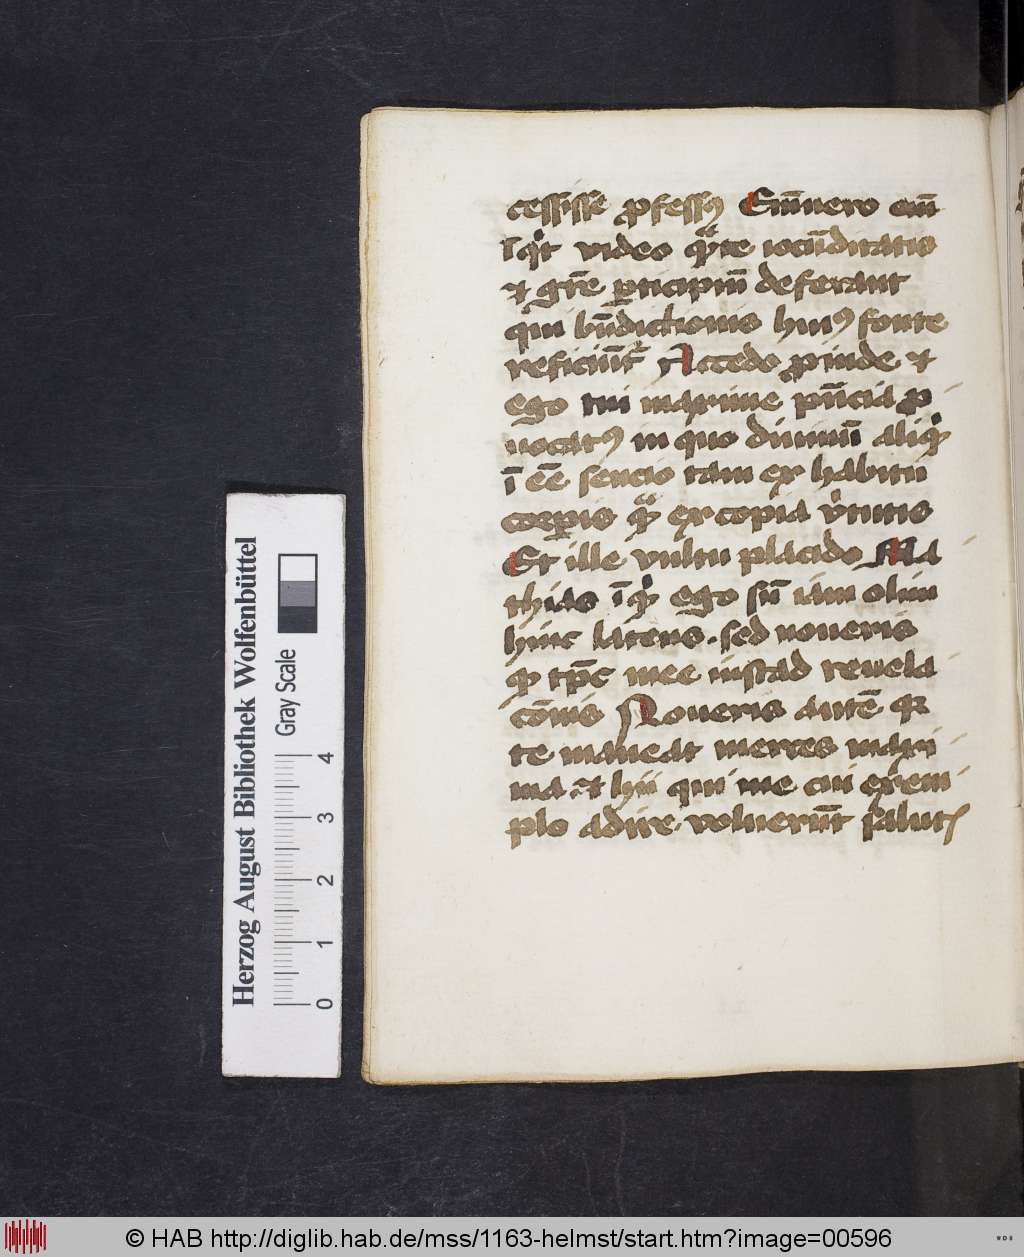 cessisse ꝓfessꝰ Enīuero eū
īqͥt video qͣte iocūditatis
et grē ꝑticipiū deferant
qui bn̄dictionis huiꝰ fonte
reficiūtᷣ Accedo ꝓinde et
ego tui maxime pn̄cia ꝓ
uocatꝰ in quo diuinū aliqͥ
ī eē sencio tam ex habitu
corꝑis qͣꝫ ex copia vͥtutis
Et ille vultu placido Ma
thias īqͥ ego sū iam olim
hinc latens . sed noueris
ꝙ tp̄e mee instad reuela
cōnis Noueris autē qꝛ
te maneat merces maxi
ma et hii qui me tui exem
plo adire voluerūt salutē
Herzog August Bibliothek Wolfenbüttel
Gray Scale
0 1 2 3 4
© HAB http://diglib.hab.de/mss/1163-helmst/start.htm?image=00596